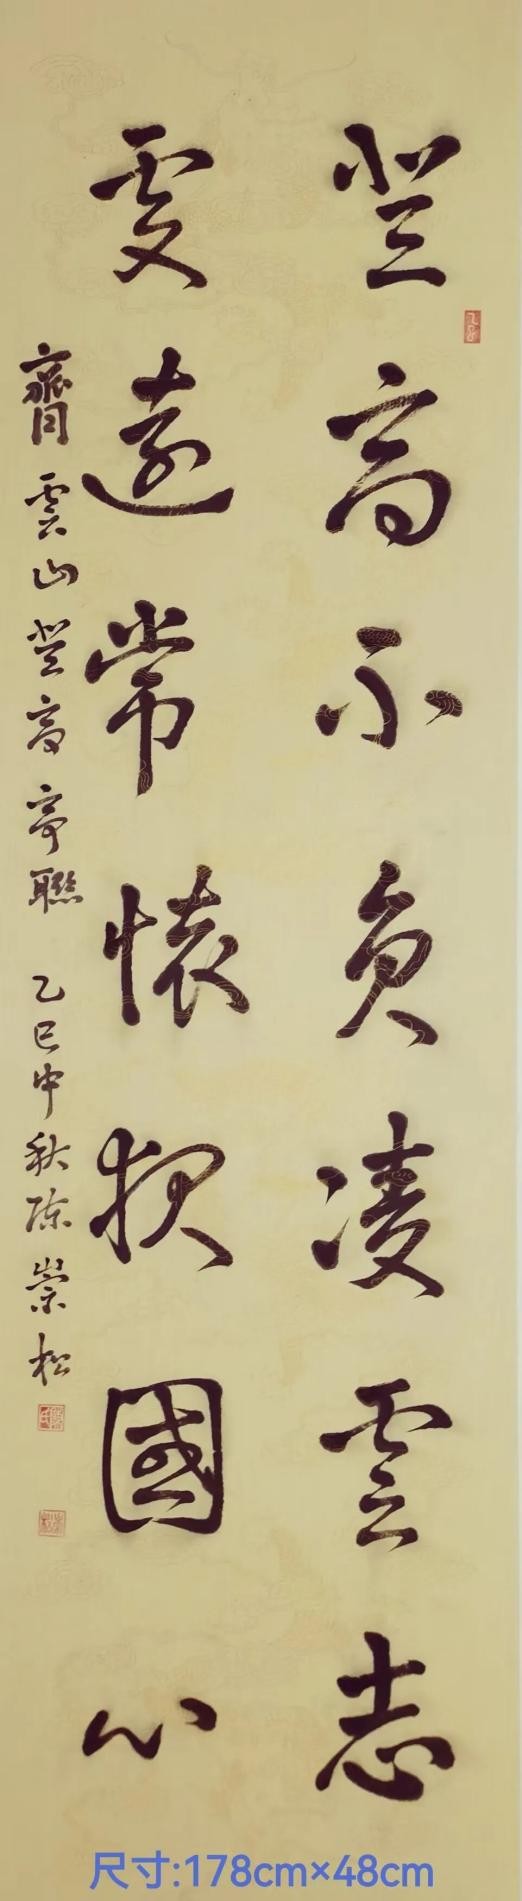 登高不負凌雲志
處遠常懷報國心
齊雲山登高亭聯 乙巳中秋陳崇松
尺寸:178cm×48cm